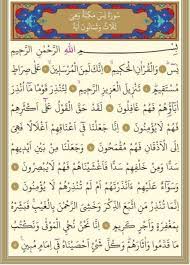 سُورَةُ يٰسٓ مَكِّيَّةٌ وَهِيَ
ثَلَاثٌ وَثَمَانُونَ آيَةً
بِسْمِ اللهِ الرَّحْمٰنِ الرَّحِيمِ
يٰسٓ ۝ وَالْقُرْاٰنِ الْحَكِيمِ ۝ اِنَّكَ لَمِنَ الْمُرْسَلِينَ ۝ عَلٰى صِرَاطٍ
مُسْتَقِيمٍ ۝ تَنْزِيلَ الْعَزِيزِ الرَّحِيمِ ۝ لِتُنْذِرَ قَوْمًا مَا اُنْذِرَ
اٰبَاؤُهُمْ فَهُمْ غَافِلُونَ ۝ لَقَدْ حَقَّ الْقَوْلُ عَلٰى اَكْثَرِهِمْ
فَهُمْ لَا يُؤْمِنُونَ ۝ اِنَّا جَعَلْنَا فِي اَعْنَاقِهِمْ اَغْلَالًا فَهِيَ
اِلَى الْاَذْقَانِ فَهُمْ مُقْمَحُونَ ۝ وَجَعَلْنَا مِنْ بَيْنِ اَيْدِيهِمْ
سَدًّا وَمِنْ خَلْفِهِمْ سَدًّا فَاَغْشَيْنَاهُمْ فَهُمْ لَا يُبْصِرُونَ ۝
وَسَوَاءٌ عَلَيْهِمْ ءَاَنْذَرْتَهُمْ اَمْ لَمْ تُنْذِرْهُمْ لَا يُؤْمِنُونَ ۝
اِنَّمَا تُنْذِرُ مَنِ اتَّبَعَ الذِّكْرَ وَخَشِيَ الرَّحْمٰنَ بِالْغَيْبِ فَبَشِّرْهُ
بِمَغْفِرَةٍ وَاَجْرٍ كَرِيمٍ ۝ اِنَّا نَحْنُ نُحْيِ الْمَوْتٰى وَنَكْتُبُ
مَا قَدَّمُوا وَاٰثَارَهُمْ وَكُلَّ شَيْءٍ اَحْصَيْنَاهُ فِي اِمَامٍ مُبِينٍ ۝